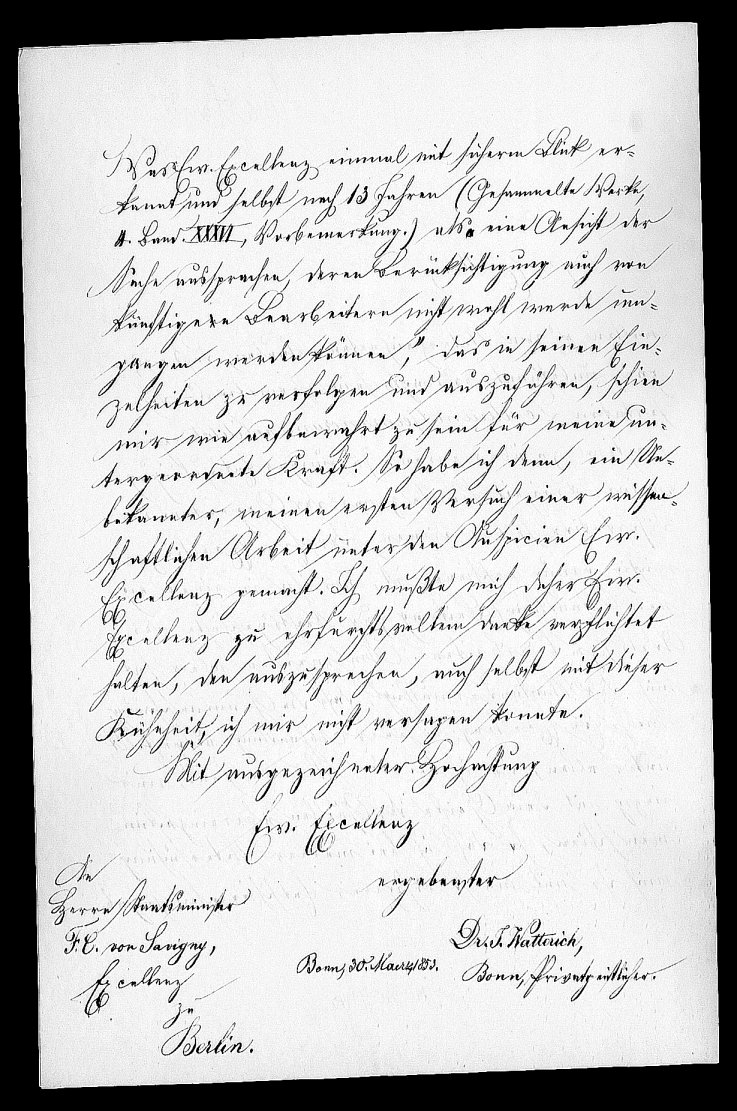 Was Ew. Excellenz einmal mit sicherm Blick er-
kannt und selbst nach 13 Jahren (Gesammelte Werke,
4. Band. XXXVI, Vorbemerkung.) als eine Ansicht der
Sache aussprachen, deren Berücksichtigung auch von
künftigen Bearbeitern nicht wohl werde um-
gangen werden können", das in seinen Ein-
zelheiten zu verfolgen und auszuführen, schien
mir wie aufbewahrt zu sein für meine un-
tergeordnete Kraft. So habe ich denn, ein Un-
bekannter, meinen ersten Versuch einer wissen-
schaftlichen Arbeit unter den Auspicien Ew.
Excellenz gemacht. Ich mußte mich daher Ew.
Excellenz zu ehrfurchtsvollem Danke verpflichtet
halten, den auszusprechen, auch selbst mit dieser
Kühnheit, ich mir nicht versagen konnte.
Mit ausgezeichneter Hochachtung
Ew. Excellenz
ergebenster
Dr. J. Watterich,
Bonn, 30. Maerz 1853.
Bonn,
An
Herrn Staatsminister
F. C. von Savigny,
Excellenz
zu
Berlin.